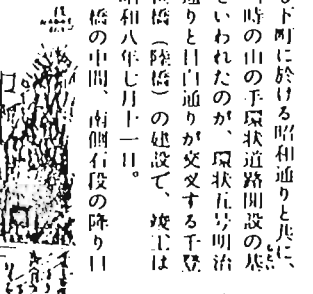 下町に於ける昭和通りと共に、
時の山の手環状道路開設の基
いわれたのが、環状五号明治
通りと目白通りが交叉する千登
橋（陸橋）の建設で、竣工は
昭和八年七月十一日。
橋の中間、南側石段の降り口